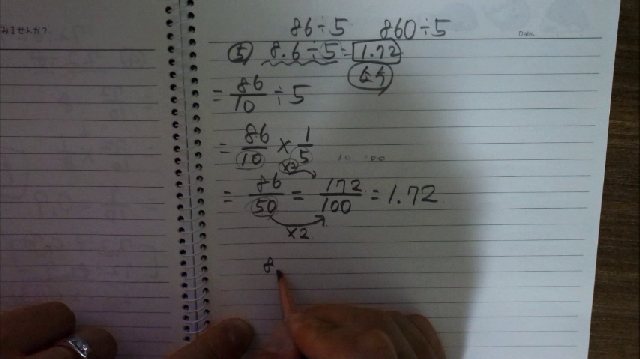 みませんか?
86÷5 860÷5
Date
⑤ 8.6÷5=1.72
= 86/10 ÷5
= 86/10 × 1/5
×2
= 86/50 = 172/100 = 1.72
×2
8